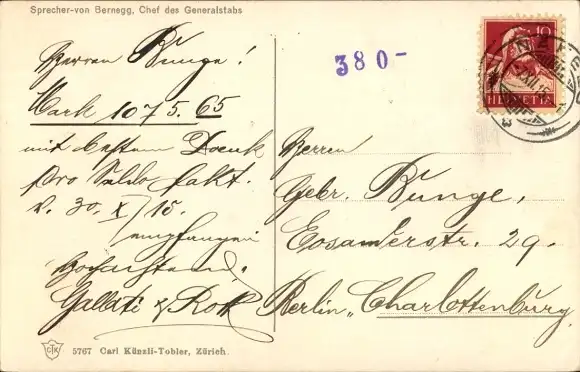 Sprecher-von Bernegg, Chef des Generalstabs
Herren Bunge!
Mark 1075.65
mit bestem Dank
pro Saldo fakt.
v. 30. X/15.
empfangen
Hochachtend,
Gallati & Rok
380-
10
HELVETIA
Herren
Gebr. Bunge,
Eosanderstr. 29.
Berlin "Charlottenburg
5767 Carl Künzli-Tobler, Zürich.